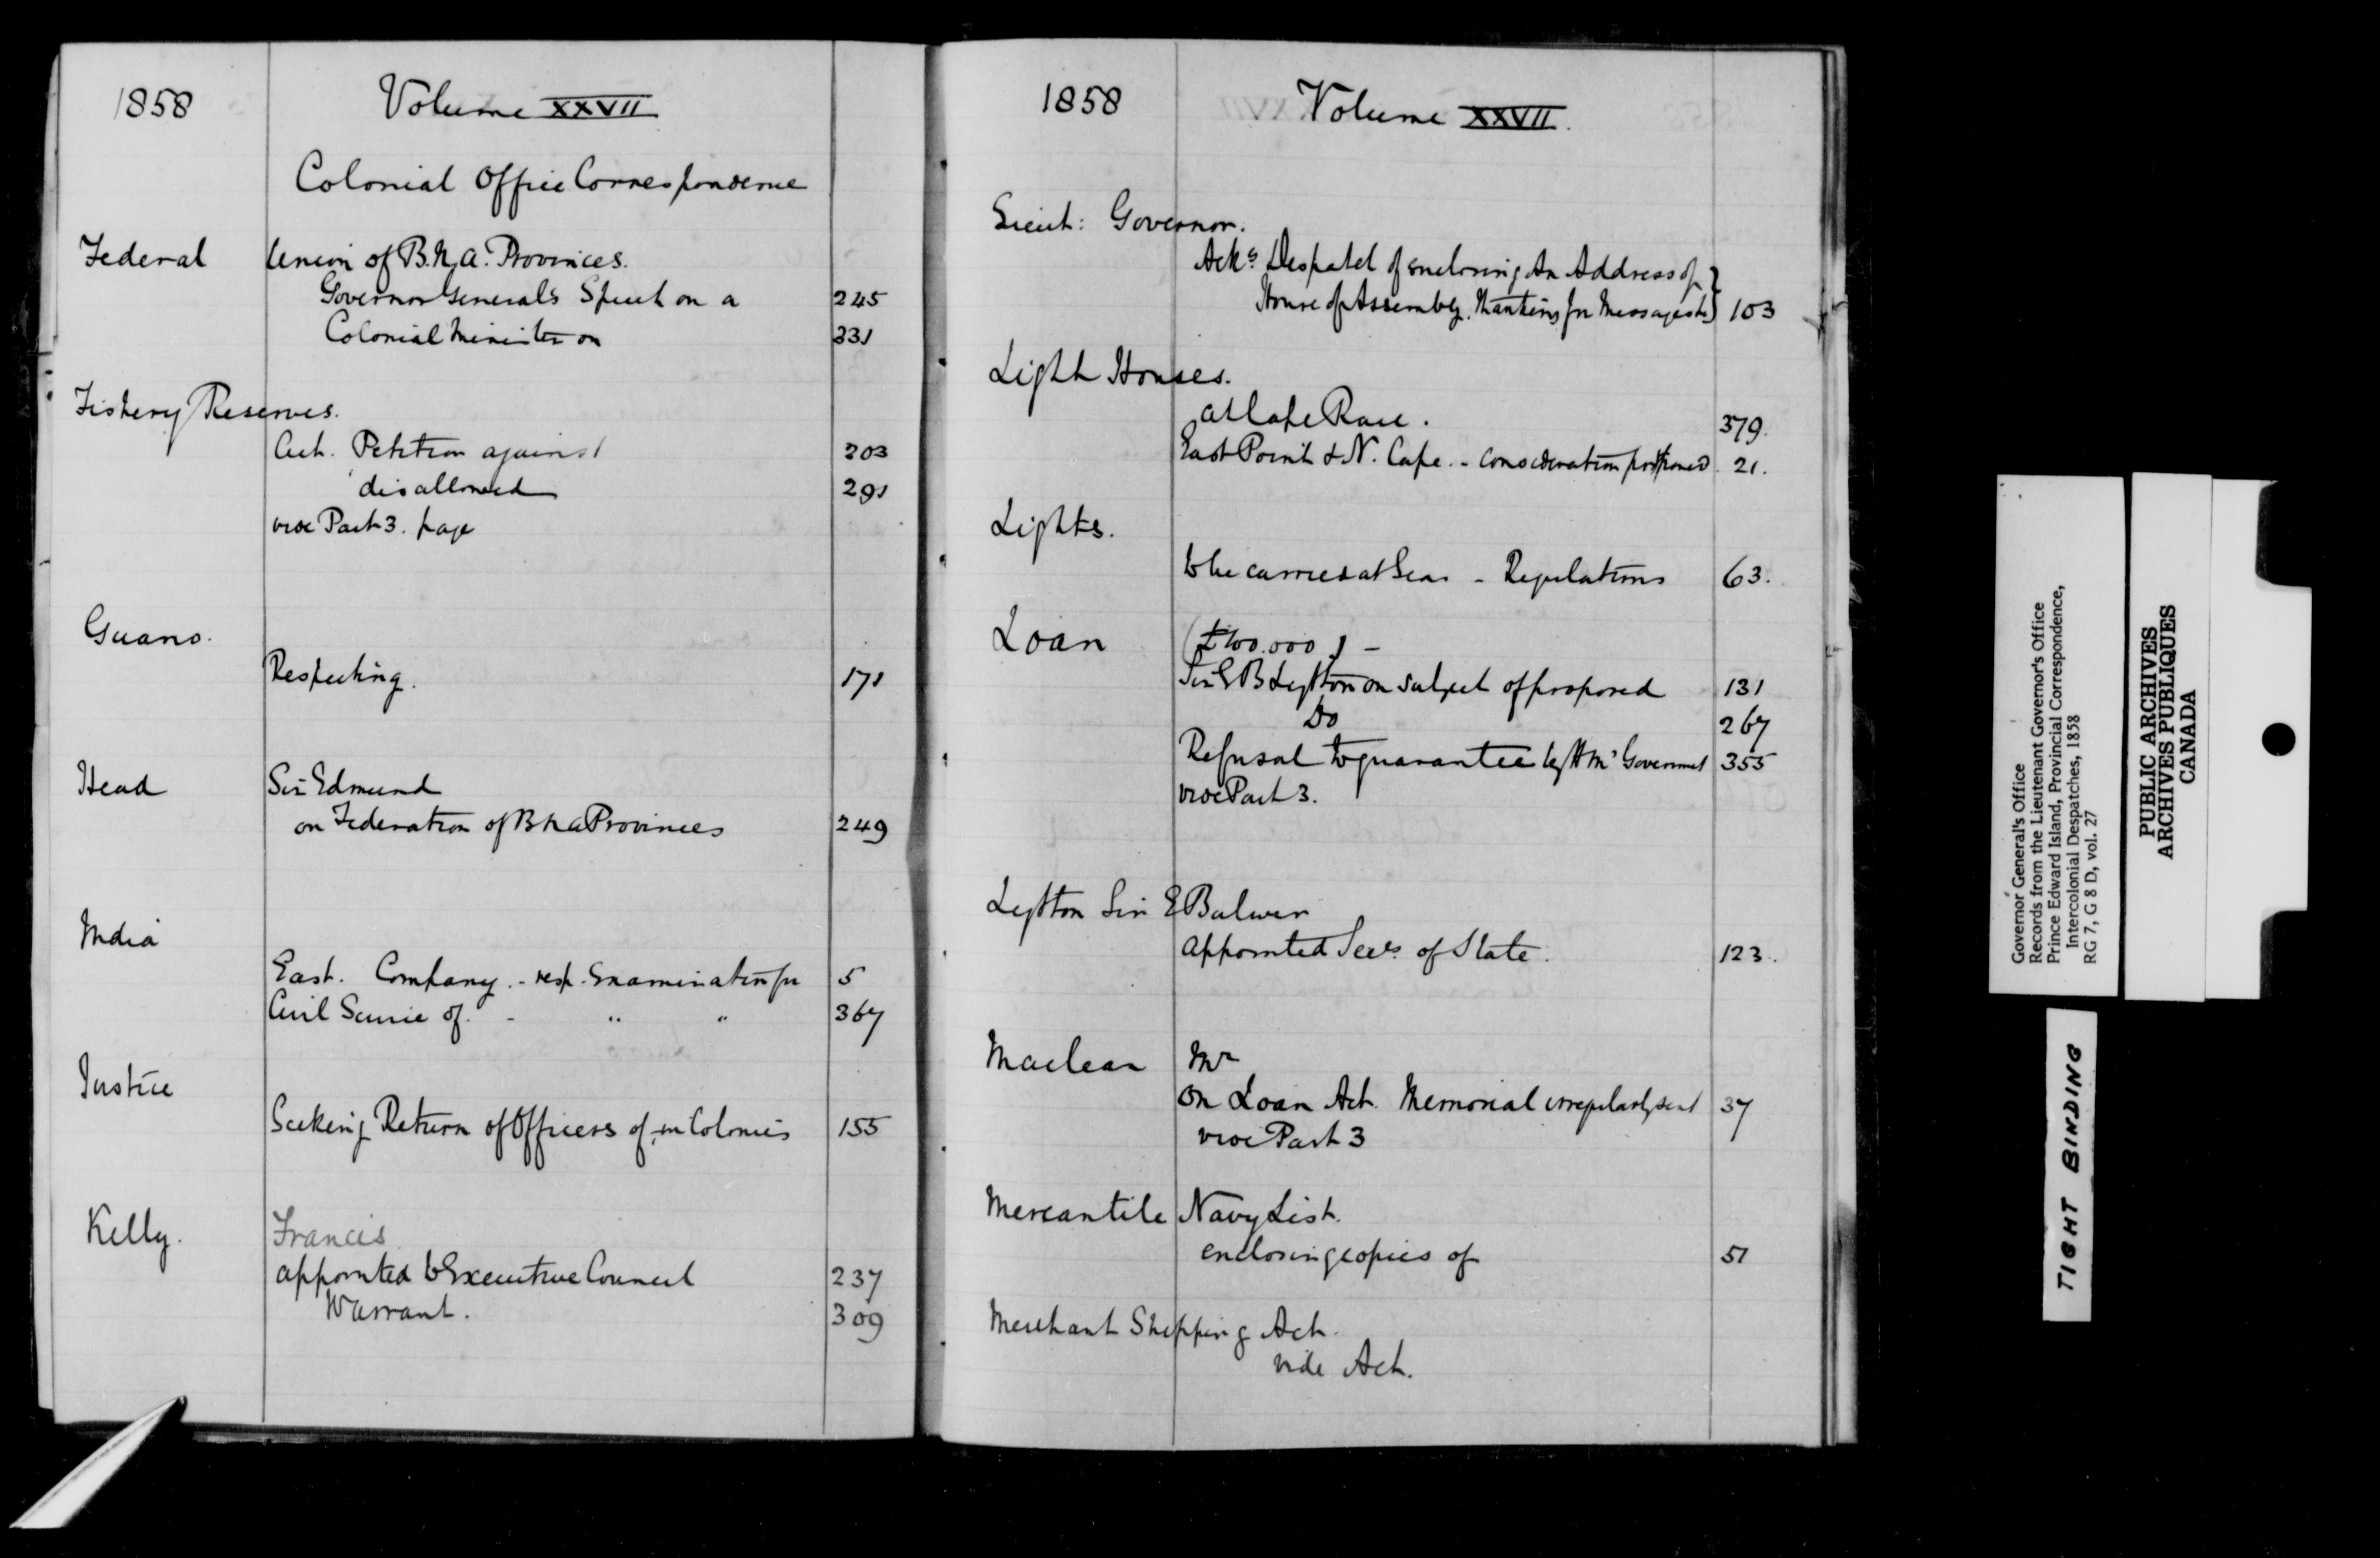 1858 Volume XXVII
Colonial Office Correspondence
Federal Union of B.N.A. Provinces.
Governor General's Speech on a 245
Colonial Minister on 331
Fishery Reserves.
Act. Petition against 203
disallowed 291
vide Part 3. page
Guano.
Respecting. 171
Head Sir Edmund
on Federation of B N A Provinces 249
India
East. Company. - resp. Examination for 5
Civil Service of. - " " 367
Justice
Seeking Return of Officers of, in Colonies 155
Kelly. Francis
appointed to Executive Council 237
Warrant. 309
1858 Volume XXVII.
Lieut: Governor.
Acks. Despatch of enclosing An Address of
House of Assembly, thanking for Message &c 103
Light Houses.
at Cape Race. 379.
East Point & N. Cape. - consideration postponed. 21.
Lights.
to be carried at Sea - Regulations 63.
Loan (£100.000) -
Sir E B Lytton on subject of proposed 131
Do 267
Refusal to guarantee by H M's Government 355
vide Part 3.
Lytton Sir E Bulwer
appointed Secy. of State. 123.
Maclean Mr
on Loan Act. Memorial irregularly sent 37
vide Part 3
Mercantile Navy List.
enclosing copies of 51
Merchant Shipping Act.
vide Act.
Governor General's Office
Records from the Lieutenant Governor's Office
Prince Edward Island, Provincial Correspondence,
Intercolonial Despatches, 1858
RG 7, G 8 D, vol. 27
PUBLIC ARCHIVES
ARCHIVES PUBLIQUES
CANADA
TIGHT BINDING